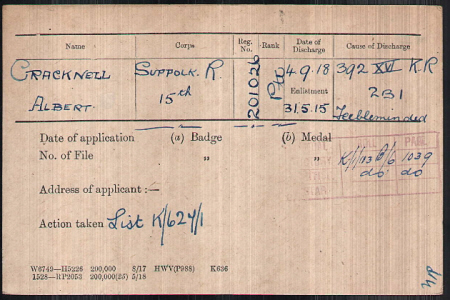 Name Corps Reg. No. Rank Date of Discharge Cause of Discharge
CRACKNELL SUFFOLK. R. 201026 Pte 4.9.18 392 XVI K.R
ALBERT. 15th Enlistment 2B1
31.5.15 Feebleminded
Date of application (a) Badge (b) Medal
No. of File " "
PAGE
K/1/113 B/6 1039
do do
Address of applicant :—
Action taken List K/627/1
W6749—H5226 200,000 8/17 HWV(P988) K636
1528—RP2053 200,000(26) 5/18